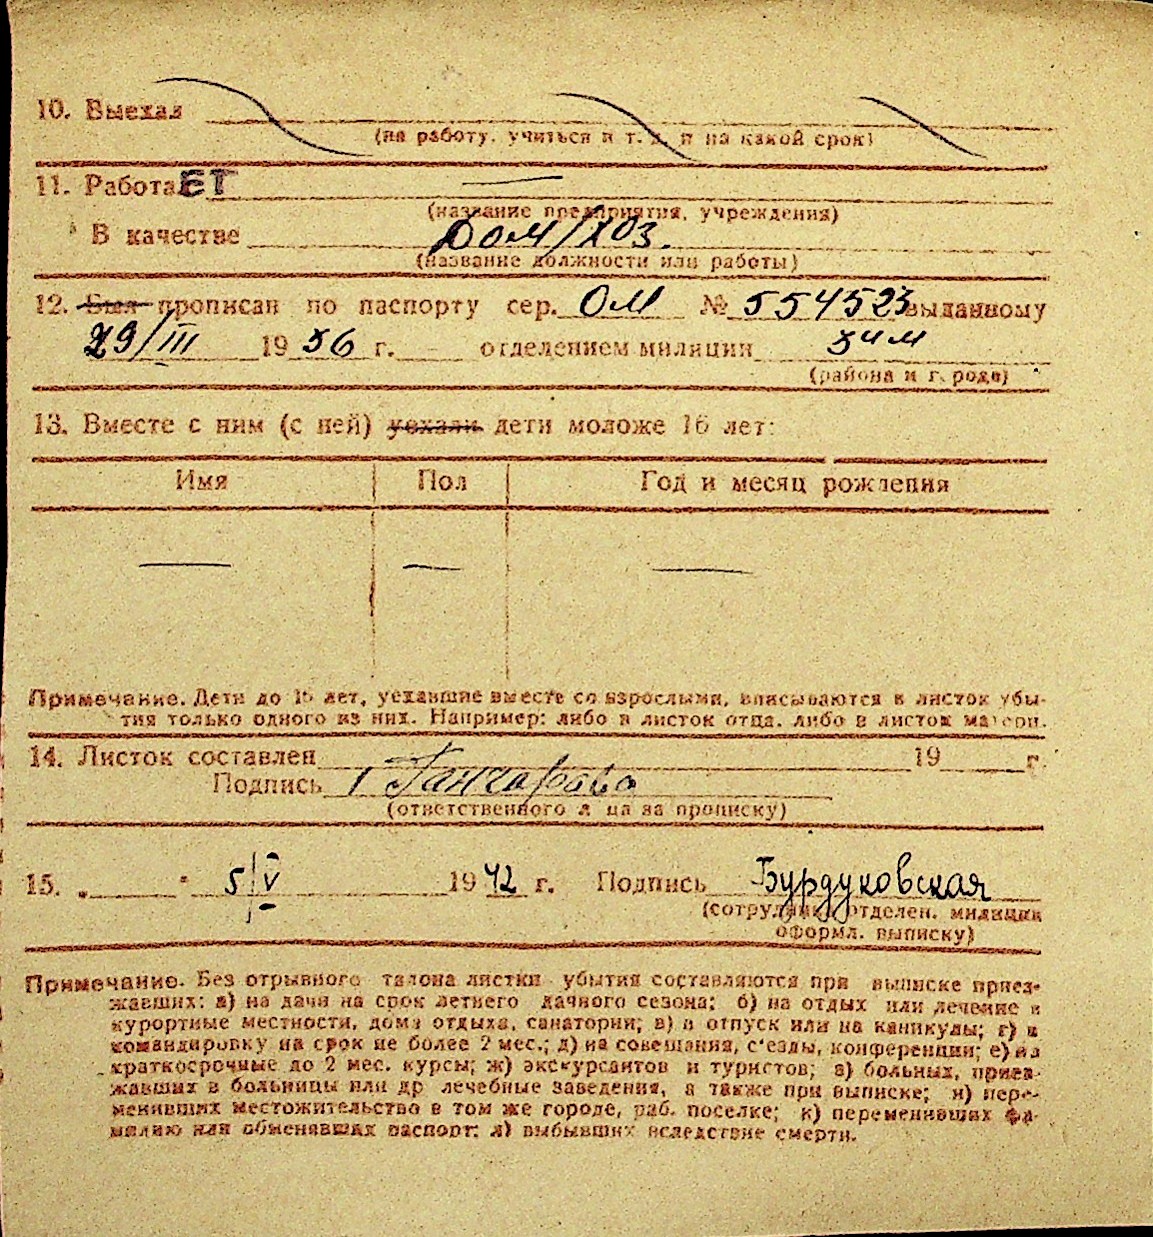 10. Выехал
(на работу. учиться и т. д. и на какой срок)
11. РаботаЕТ —
(название предприятия, учреждения)
В качестве Дом/хоз.
(название должности или работы)
12. Был прописан по паспорту сер. ОМ № 554523 выданному
29/III 1936 г. отделением милиции 34 м
(района и города)
13. Вместе с ним (с ней) уехали дети моложе 16 лет:
Имя Пол Год и месяц рождения
— — —
Примечание. Дети до 16 лет, уехавшие вместе со взрослыми, вписываются в листок убы-
тия только одного из них. Например: либо в листок отца. либо в листок матери.
14. Листок составлен 19 г.
Подпись
(ответственного лица за прописку)
15. „ " 5/V 1942 г. Подпись Бурдуковская
(сотрудника отделен. милиции
оформл. выписку)
Примечание. Без отрывного талона листки убытия составляются при выписке приез-
жавших: а) на дачи на срок летнего дачного сезона; б) на отдых или лечение в
курортные местности, дома отдыха, санатории; в) в отпуск или на каникулы; г) в
командировку на срок не более 2 мес.; д) на совещания, с'езды, конференции; е) на
краткосрочные до 2 мес. курсы; ж) экскурсантов и туристов; з) больных, приез-
жавших в больницы или др лечебные заведения, а также при выписке; и) пере-
менивших местожительство в том же городе, раб. поселке; к) переменивших фа-
милию или обменявших паспорт: л) выбывших вследствие смерти.